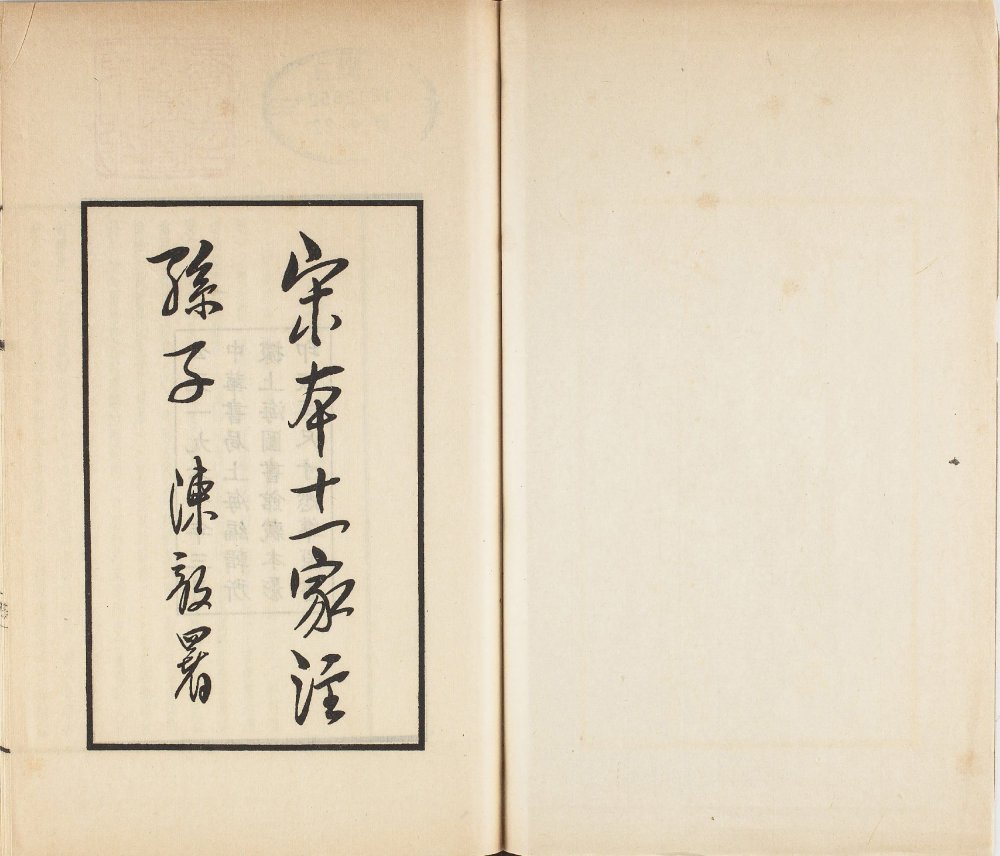 宋本十一家注
孫子 陳毅署